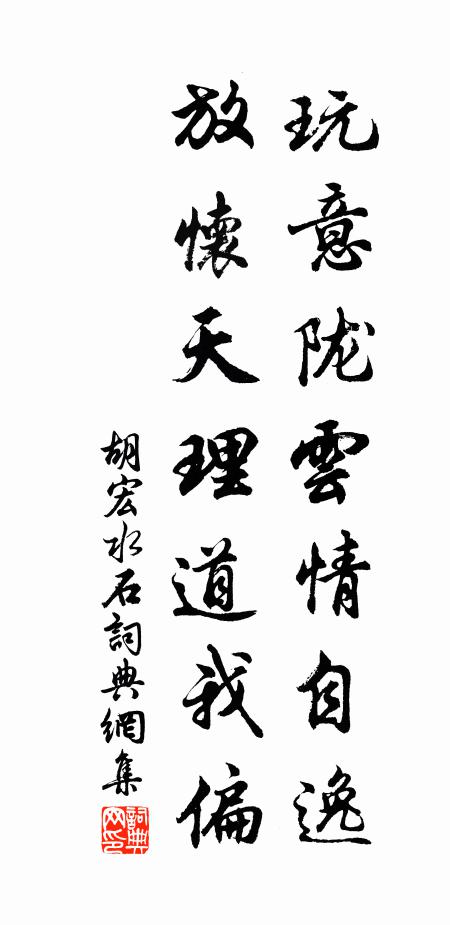 玩意陇雲情自逸
放懷天理道我偏
胡宏水石詞典網集
詞典网印